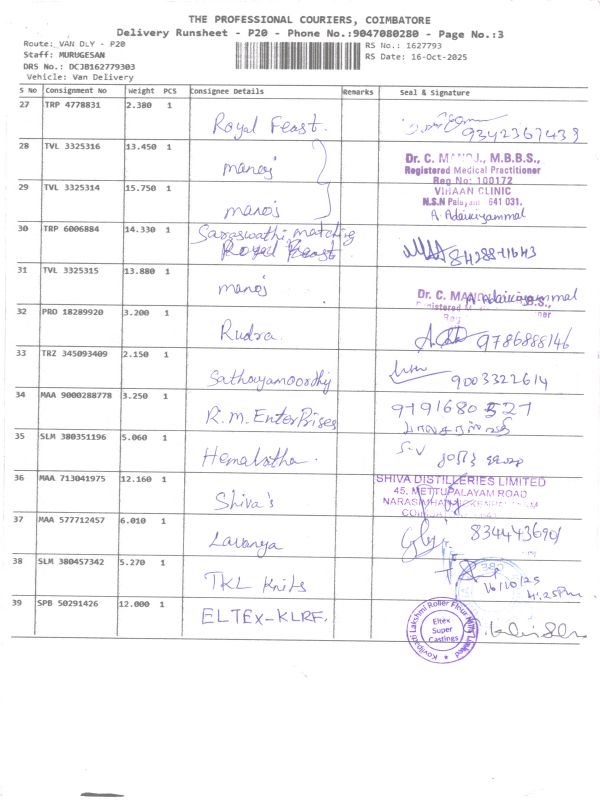 THE PROFESSIONAL COURIERS, COIMBATORE
Delivery Runsheet - P20 - Phone No.:9047080280 - Page No.:3
Route: VAN DLY - P20
Staff: MURUGESAN
DRS No.: DCJB162779303
Vehicle: Van Delivery
RS No.: 1627793
RS Date: 16-Oct-2025
S No Consignment No Weight PCS Consignee Details Remarks Seal & Signature
27 TRP 4778831 2.380 1 Royal Feast. 9342367439
28 TVL 3325316 13.450 1 manoj
Dr. C. MANOJ., M.B.B.S.,
Registered Medical Practitioner
Reg No: 100172
29 TVL 3325314 15.750 1 manoj
VIHAAN CLINIC
N.S.N Palayam 641 031.
A. Adaikayammal
30 TRP 6006884 14.330 1 Saraswathi matching
Royal Feast
31 TVL 3325315 13.880 1 manoj
Dr. C. MANOJ A. Adaikayammal
32 PRO 18289920 3.200 1 Rudra. 9786888146
33 TRZ 345093409 2.150 1 Sathayamoorthy 9003322614
34 MAA 9000288778 3.250 1 R.m. EnterPrises 9191680
35 SLM 380351196 5.060 1 Hemalatha.
36 MAA 713041975 12.160 1 Shiva's
SHIVA DISTILLERIES LIMITED
45, METTUPALAYAM ROAD
37 MAA 577712457 6.010 1 Lavanya 8344436901
38 SLM 380457342 5.270 1 TKL Knits
16/10/25
4.25Pm
39 SPB 50291426 12.000 1 ELTEX-KLRF.
Kovilpatti Lakshmi Roller Flour Mills Limited
Eltex
Super
Castings